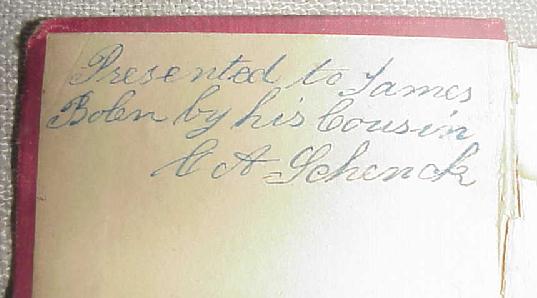 Presented to James
Bolen by his Cousin
C A Schenck